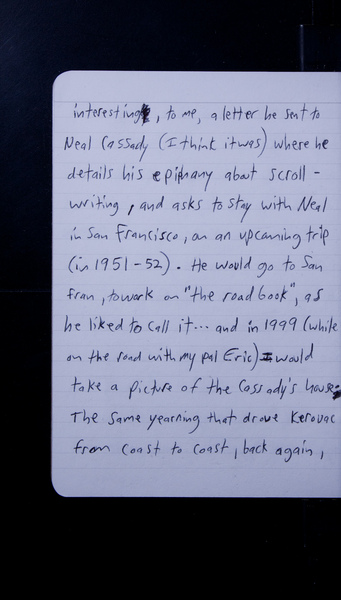 interesting, to me, a letter he sent to
Neal Cassady (I think it was) where he
details his epiphany about scroll -
writing, and asks to stay with Neal
in San Francisco, on an upcoming trip
(in 1951-52). He would go to San
Fran, to work on "the road book", as
he liked to call it... and in 1999 (while
on the road with my pal Eric) I would
take a picture of the Cassady's house.
The same yearning that drove Kerouac
from coast to coast, back again,